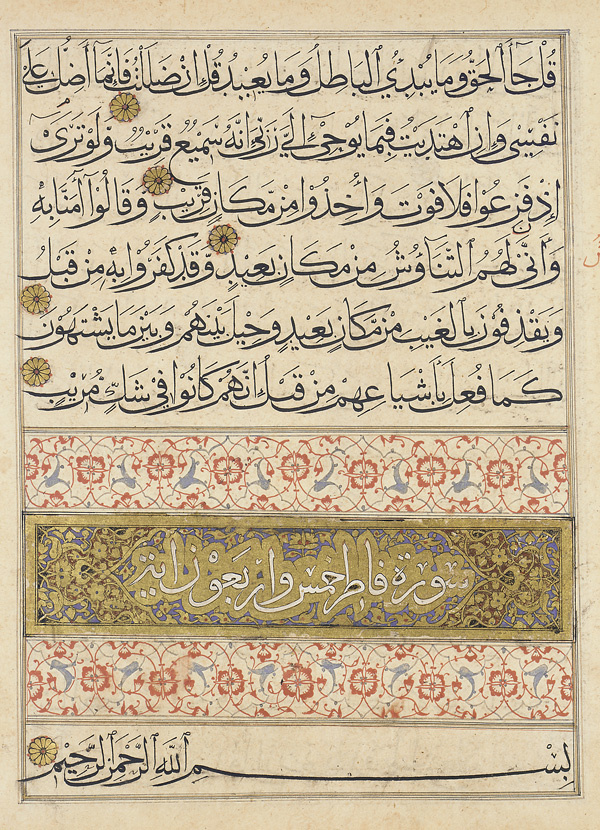 قُلْ جَآءَ ٱلْحَقُّ وَمَا يُبْدِئُ ٱلْبَاطِلُ وَمَا يُعِيدُ قُلْ إِنْ ضَلَلْتُ فَإِنَّمَآ أَضِلُّ عَلَىٰ
نَفْسِى وَإِنِ ٱهْتَدَيْتُ فَبِمَا يُوحِىٓ إِلَىَّ رَبِّىٓ إِنَّهُ سَمِيعٌ قَرِيبٌ وَلَوْ تَرَىٰٓ
إِذْ فَزِعُوا فَلَا فَوْتَ وَأُخِذُوا مِنْ مَكَانٍ قَرِيبٍ وَقَالُوٓا آمَنَّا بِهِ
وَأَنَّىٰ لَهُمُ ٱلتَّنَاوُشُ مِنْ مَكَانٍ بَعِيدٍ وَقَدْ كَفَرُوا بِهِ مِنْ قَبْلُ
وَيَقْذِفُونَ بِٱلْغَيْبِ مِنْ مَكَانٍ بَعِيدٍ وَحِيلَ بَيْنَهُمْ وَبَيْنَ مَا يَشْتَهُونَ
كَمَا فُعِلَ بِأَشْيَاعِهِمْ مِنْ قَبْلُ إِنَّهُمْ كَانُوا فِى شَكٍّ مُرِيبٍ
سورة فاطر خمس واربعون اية
بِسْمِ ٱللَّهِ ٱلرَّحْمَٰنِ ٱلرَّحِيمِ